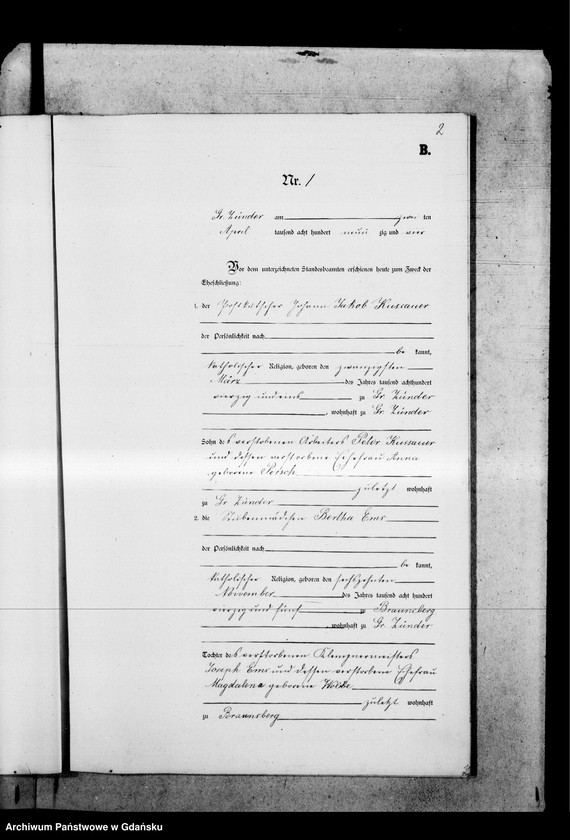 2
B.
Nr. 1
Gr. Zünder am zwei ten
April tausend acht hundert neun zig und vier
Vor dem unterzeichneten Standesbeamten erschienen heute zum Zweck der
Eheschließung:
1. der Johann Jakob Kussauer
der Persönlichkeit nach
be kannt,
katholischer Religion, geboren den zwanzigsten
März des Jahres tausend achthundert
vierzig und eins zu Gr. Zünder
, wohnhaft zu Gr. Zünder
Sohn des verstorbenen Arbeiters Peter Kussauer
und dessen verstorbene Ehefrau Anna
geborene
zuletzt wohnhaft
zu Gr. Zünder
2. die Stubenmädchen Bertha Ems
der Persönlichkeit nach
be kannt,
katholischer Religion, geboren den sechszehnten
November des Jahres tausend acht hundert
vierzig und fünf zu Braunsberg
, wohnhaft zu Gr. Zünder
Tochter des verstorbenen Klempnermeisters
Joseph Ems und dessen verstorbene Ehefrau
Magdalena geborene Wölke
zuletzt wohnhaft
zu Braunsberg
Archiwum Państwowe w Gdańsku